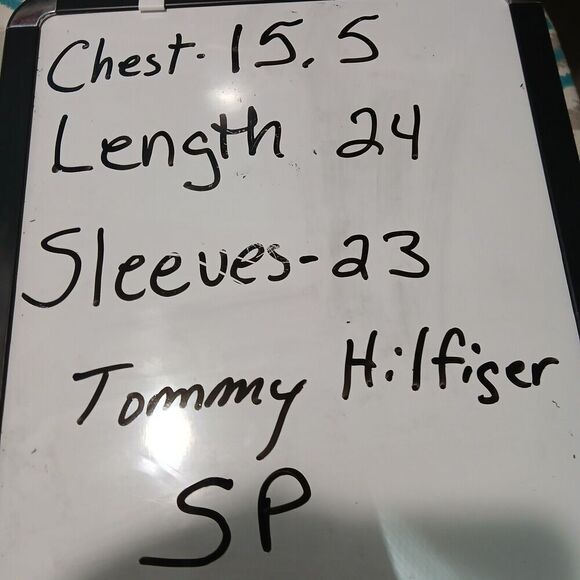 Chest- 15.5
Length 24
Sleeves-23
Tommy Hilfiger
SP